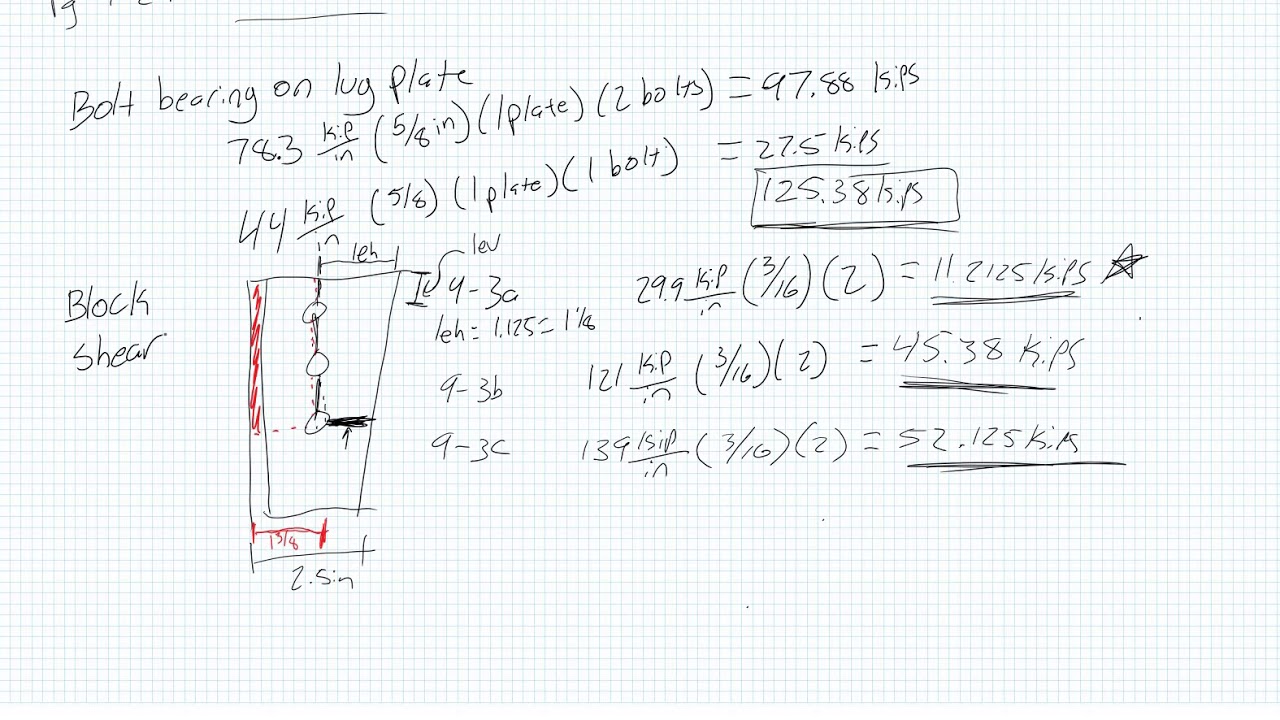 Bolt bearing on lug plate
78.3 kip/in (5/8 in)(1 plate)(2 bolts) = 97.88 kips
44 kip/in (5/8)(1 plate)(1 bolt) = 27.5 kips
125.38 kips
leh
lev
Block
shear
9-3a 29.9 kip/in (3/16)(2) = 11.2125 kips
leh = 1.125 = 1 1/8
9-3b 121 kip/in (3/16)(2) = 45.38 kips
9-3c 139 kip/in (3/16)(2) = 52.125 kips
1 3/8
2.5in